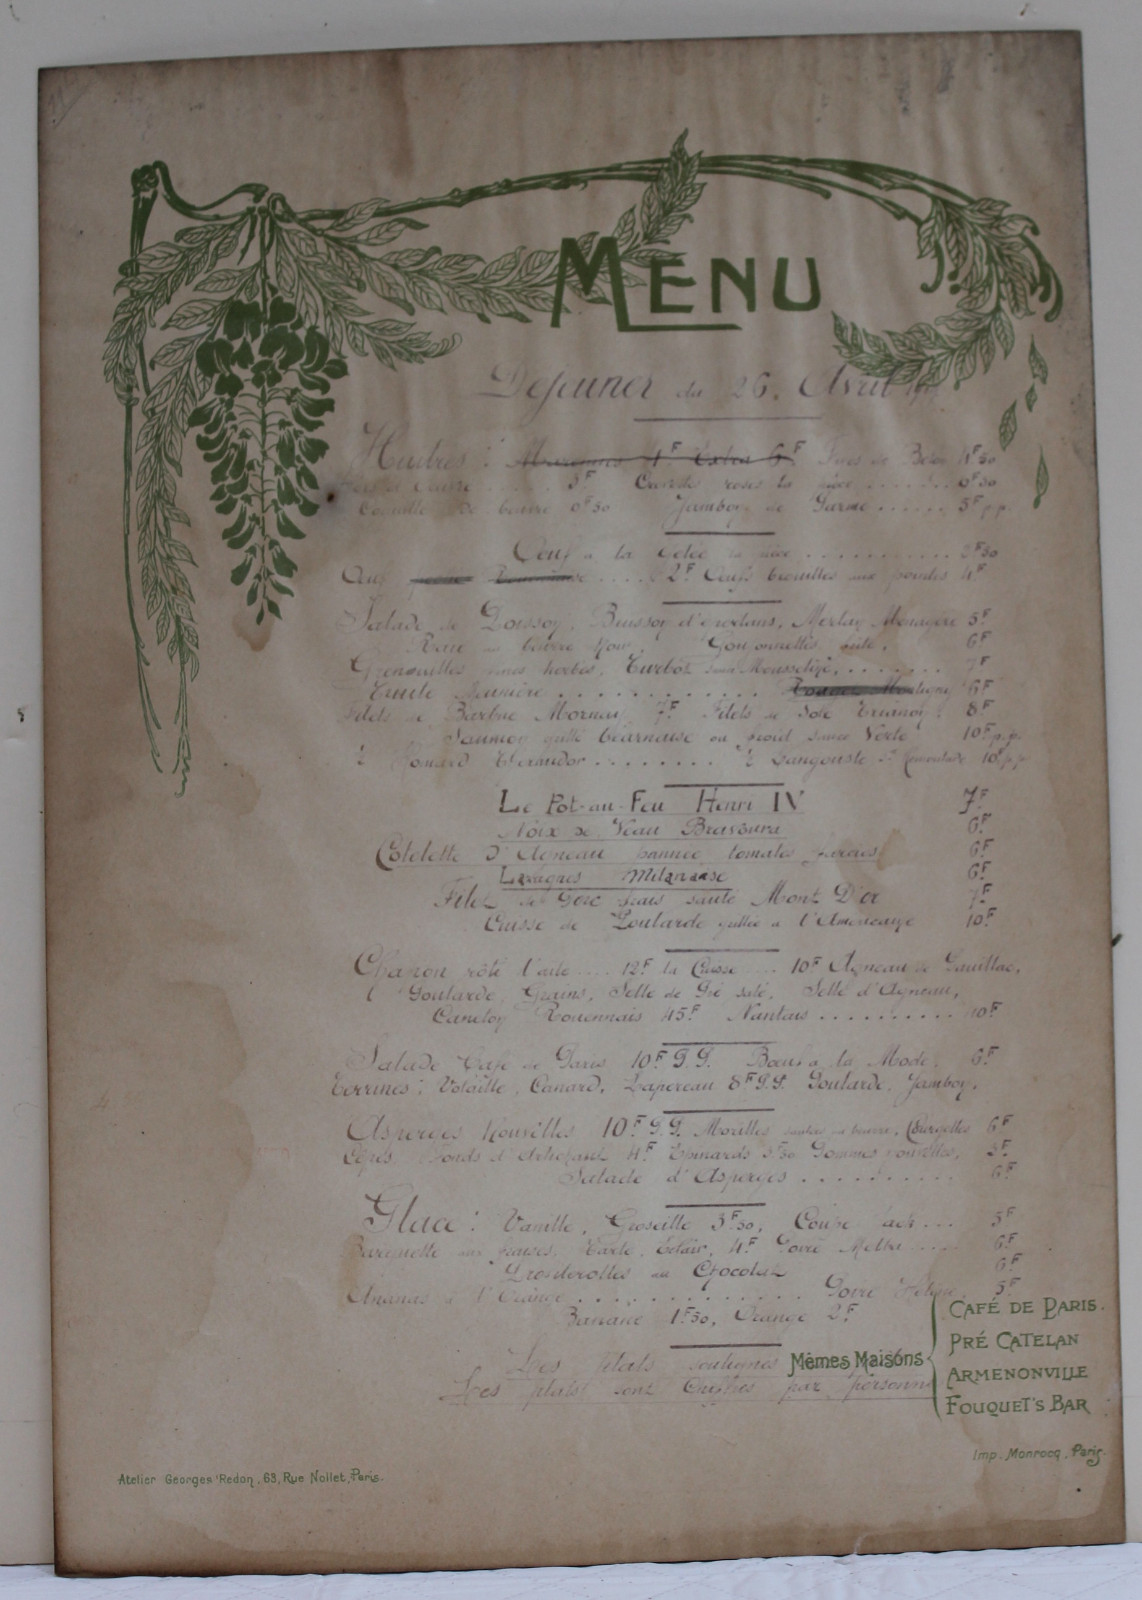 MENU
Dejeuner du 26. Avril
Huitres : Marennes 4F Extra 6F de Belon 4F50
Hors d'Oeuvre ...... 3F Crevettes roses la pièce ........ 0F50
Coquille de beurre 0F50 Jambon de Parme ...... 5F p.p.
Oeuf à la Gelée la pièce ........... 2F50
Oeuf .... 2F Oeufs brouillés aux pointes 4F
Salade de Poisson, Buisson d'Eperlans, Merlan Ménagère 5F
Raie au beurre Noir, Goujonnettes 6F
Grenouilles fines herbes, Turbot sauce Mousseline, ........ 7F
Truite Meunière ............ Rouget Montigny 6F
Filets de Barbue Mornay 7F Filets de Sole Trianon 8F
Saumon grillé béarnaise ou froid sauce Verte 10F p.p.
½ Homard Thermidor ........ ½ Langouste Remoulade 10F p.p
Le Pot-au-Feu Henri IV 7F
Noix de Veau Bravoura 6F
Cotelette d'Agneau pannée tomates farcies 6F
Lasagnes Milanaise 6F
Filet de Porc frais sauté Mont D'or 7F
Cuisse de Poularde grillée à l'Américaine 10F
Chapon rôti l'aile .... 12F la Cuisse .... 10F Agneau de Pauillac,
Poularde, Grains, Selle de Pré salé, Selle d'Agneau,
Caneton Rouennais 45F Nantais .......... 40F
Salade Café de Paris 10F P.P. Boeuf à la Mode, 6F
Terrines : Volaille, Canard, Lapereau 8F P.P. Poularde, Jambon,
Asperges Nouvelles 10F P.P. Morilles sautées au beurre, Courgettes 6F
Cèpes, Fonds d'Artichaut 4F Epinards 3F50 Pommes nouvelles, 3F
Salade d'Asperges .......... 6F
Glace : Vanille, Groseille 3F50, Coupe Jack ... 5F
aux fraises, Tarte, Eclair, 4F Poire Melba .... 6F
Profiterolles au Chocolat 6F
Ananas à l'Orange ............. Poire Hélène, 5F
Banane 1F50, Orange 2F
Les plats soulignés
Les plats sont Chiffrés par personne
Mêmes Maisons
CAFÉ DE PARIS.
PRÉ CATELAN
ARMENONVILLE
FOUQUET'S BAR
Imp. Monrocq, Paris.
Atelier Georges Redon, 63, Rue Nollet, Paris.